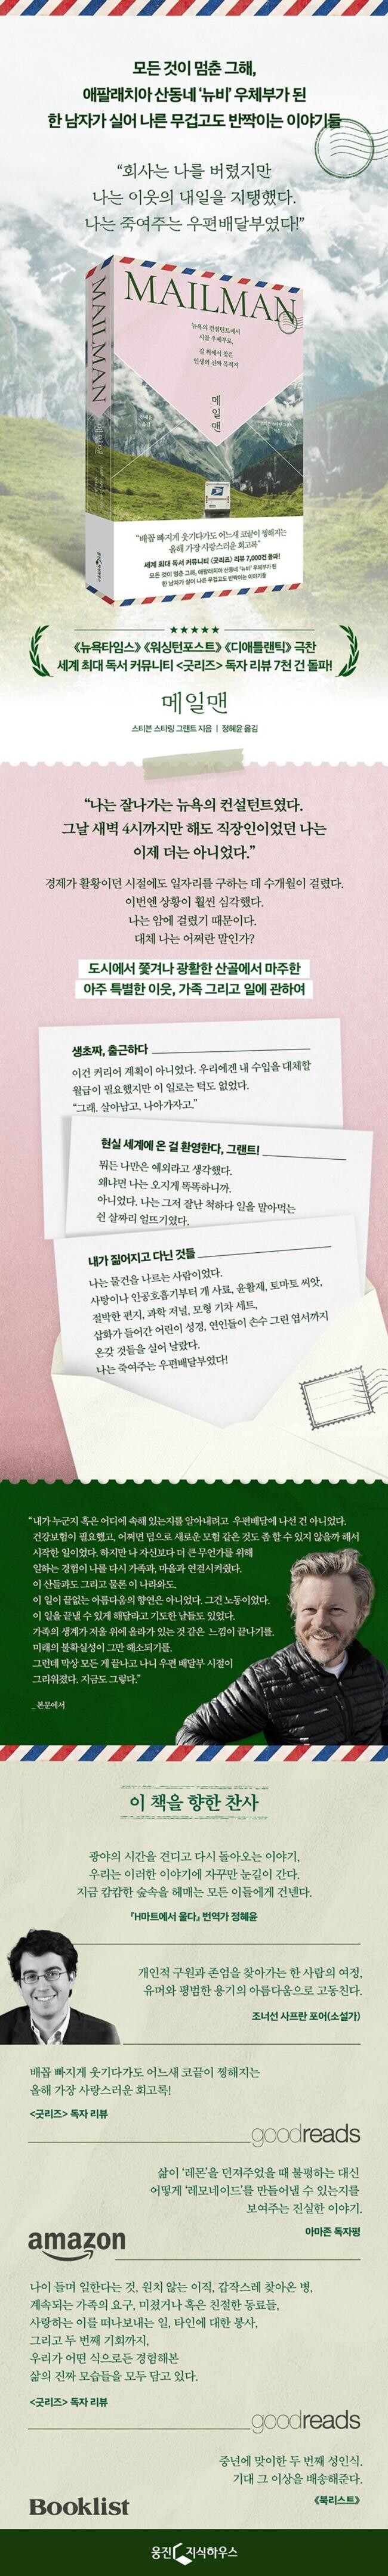 모든 것이 멈춘 그해,
애팔래치아 산동네 '뉴비' 우체부가 된
한 남자가 실어 나른 무겁고도 반짝이는 이야기들
“회사는 나를 버렸지만
나는 이웃의 내일을 지탱했다.
나는 죽여주는 우편배달부였다!”
MAILMAN
MAILMAN
뉴욕의 컨설턴트에서
시골 우체부로,
길 위에서 찾은
인생의 진짜 목적지
메일맨
“배꼽 빠지게 웃기다가도 어느새 코끝이 찡해지는
올해 가장 사랑스러운 회고록”
세계 최대 독서 커뮤니티 〈굿리즈〉 리뷰 7,000건 돌파!
모든 것이 멈춘 그해, 애팔래치아 산동네 '뉴비' 우체부가 된
한 남자가 실어 나른 무겁고도 반짝이는 이야기들
★★★★★
《뉴욕타임스》 《워싱턴포스트》 《디애틀랜틱》 극찬
세계 최대 독서 커뮤니티 <굿리즈> 독자 리뷰 7천 건 돌파!
메일맨
스티븐 스타링 그랜트 지음 | 정혜윤 옮김
“나는 잘나가는 뉴욕의 컨설턴트였다.
그날 새벽 4시까지만 해도 직장인이었던 나는
이제 더는 아니었다.”
경제가 활황이던 시절에도 일자리를 구하는 데 수개월이 걸렸다.
이번엔 상황이 훨씬 심각했다.
나는 암에 걸렸기 때문이다.
대체 나는 어쩌란 말인가?
도시에서 쫓겨나 광활한 산골에서 마주한
아주 특별한 이웃, 가족 그리고 일에 관하여
생초짜, 출근하다
이건 커리어 계획이 아니었다. 우리에겐 내 수입을 대체할
월급이 필요했지만 이 일로는 턱도 없었다.
“그래. 살아남고, 나아가자고.”
현실 세계에 온 걸 환영한다, 그랜트!
뭐든 나만은 예외라고 생각했다.
왜냐면 나는 오지게 똑똑하니까.
아니었다. 나는 그저 잘난 척하다 일을 말아먹는
쉰 살짜리 얼뜨기였다.
내가 짊어지고 다닌 것들
나는 물건을 나르는 사람이었다.
사탕이나 인공호흡기부터 개 사료, 윤활제, 토마토 씨앗,
절박한 편지, 과학 저널, 모형 기차 세트,
삽화가 들어간 어린이 성경, 연인들이 손수 그린 엽서까지
온갖 것들을 실어 날랐다.
나는 죽여주는 우편배달부였다!
“내가 누군지 혹은 어디에 속해 있는지를 알아내려고 우편배달에 나선 건 아니었다.
건강보험이 필요했고, 어쩌면 덤으로 새로운 모험 같은 것도 좀 할 수 있지 않을까 해서
시작한 일이었다. 하지만 나 자신보다 더 큰 무언가를 위해
일하는 경험이 나를 다시 가족과, 마을과 연결시켜줬다.
이 산들과도 그리고 물론 이 나라와도.
이 일이 끝없는 아름다움의 향연은 아니었다. 그건 노동이었다.
이 일을 끝낼 수 있게 해달라고 기도한 날들도 있었다.
가족의 생계가 저울 위에 올라가 있는 것 같은 느낌이 끝나기를,
미래의 불확실성이 그만 해소되기를.
그런데 막상 모든 게 끝나고 나니 우편 배달부 시절이
그리워졌다. 지금도 그렇다.”
_ 본문에서
이 책을 향한 찬사
광야의 시간을 견디고 다시 돌아오는 이야기,
우리는 이러한 이야기에 자꾸만 눈길이 간다.
지금 캄캄한 숲속을 헤매는 모든 이들에게 건넨다.
『H마트에서 울다』 번역가 정혜윤
개인적 구원과 존엄을 찾아가는 한 사람의 여정,
유머와 평범한 용기의 아름다움으로 고동친다.
조너선 사프란 포어(소설가)
배꼽 빠지게 웃기다가도 어느새 코끝이 찡해지는
올해 가장 사랑스러운 회고록!
<굿리즈> 독자 리뷰
goodreads
삶이 '레몬'을 던져주었을 때 불평하는 대신
어떻게 '레모네이드'를 만들어낼 수 있는지를
보여주는 진실한 이야기.
아마존 독자평
amazon
나이 들며 일한다는 것, 원치 않는 이직, 갑작스레 찾아온 병,
계속되는 가족의 요구, 미쳤거나 혹은 친절한 동료들,
사랑하는 이를 떠나보내는 일, 타인에 대한 봉사,
그리고 두 번째 기회까지,
우리가 어떤 식으로든 경험해본
삶의 진짜 모습들을 모두 담고 있다.
<굿리즈> 독자 리뷰
goodreads
중년에 맞이한 두 번째 성인식.
기대 그 이상을 배송해준다.
《북리스트》
Booklist
웅진 지식하우스